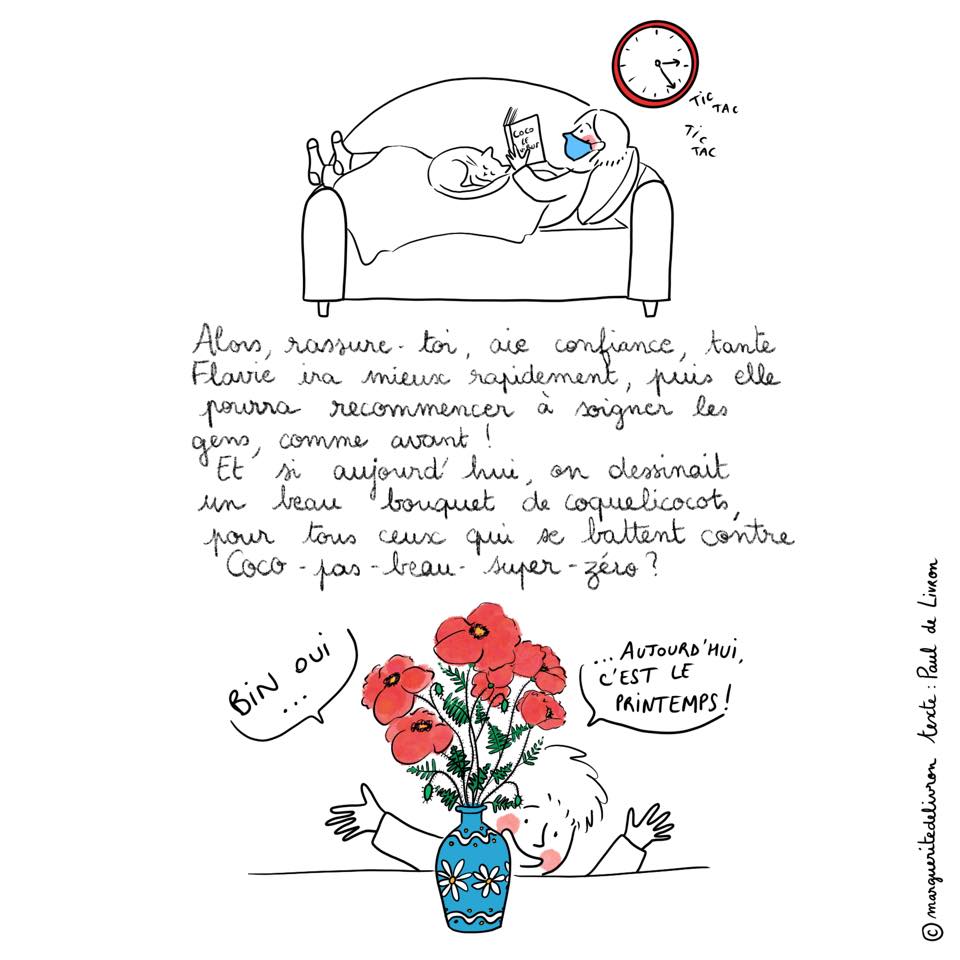 TIC
TAC
TIC
TAC
COCO
LE
VIRUS
Alors, rassure-toi, aie confiance, tante
Flavie ira mieux rapidement, puis elle
pourra recommencer à soigner les
gens, comme avant !
Et si aujourd'hui, on dessinait
un beau bouquet de coquelicocots,
pour tous ceux qui se battent contre
Coco-pas-beau-super-zéro ?
BIN OUI
...
...AUJOURD'HUI,
C'EST LE
PRINTEMPS !
© margueritedelivron texte : Paul de Livron